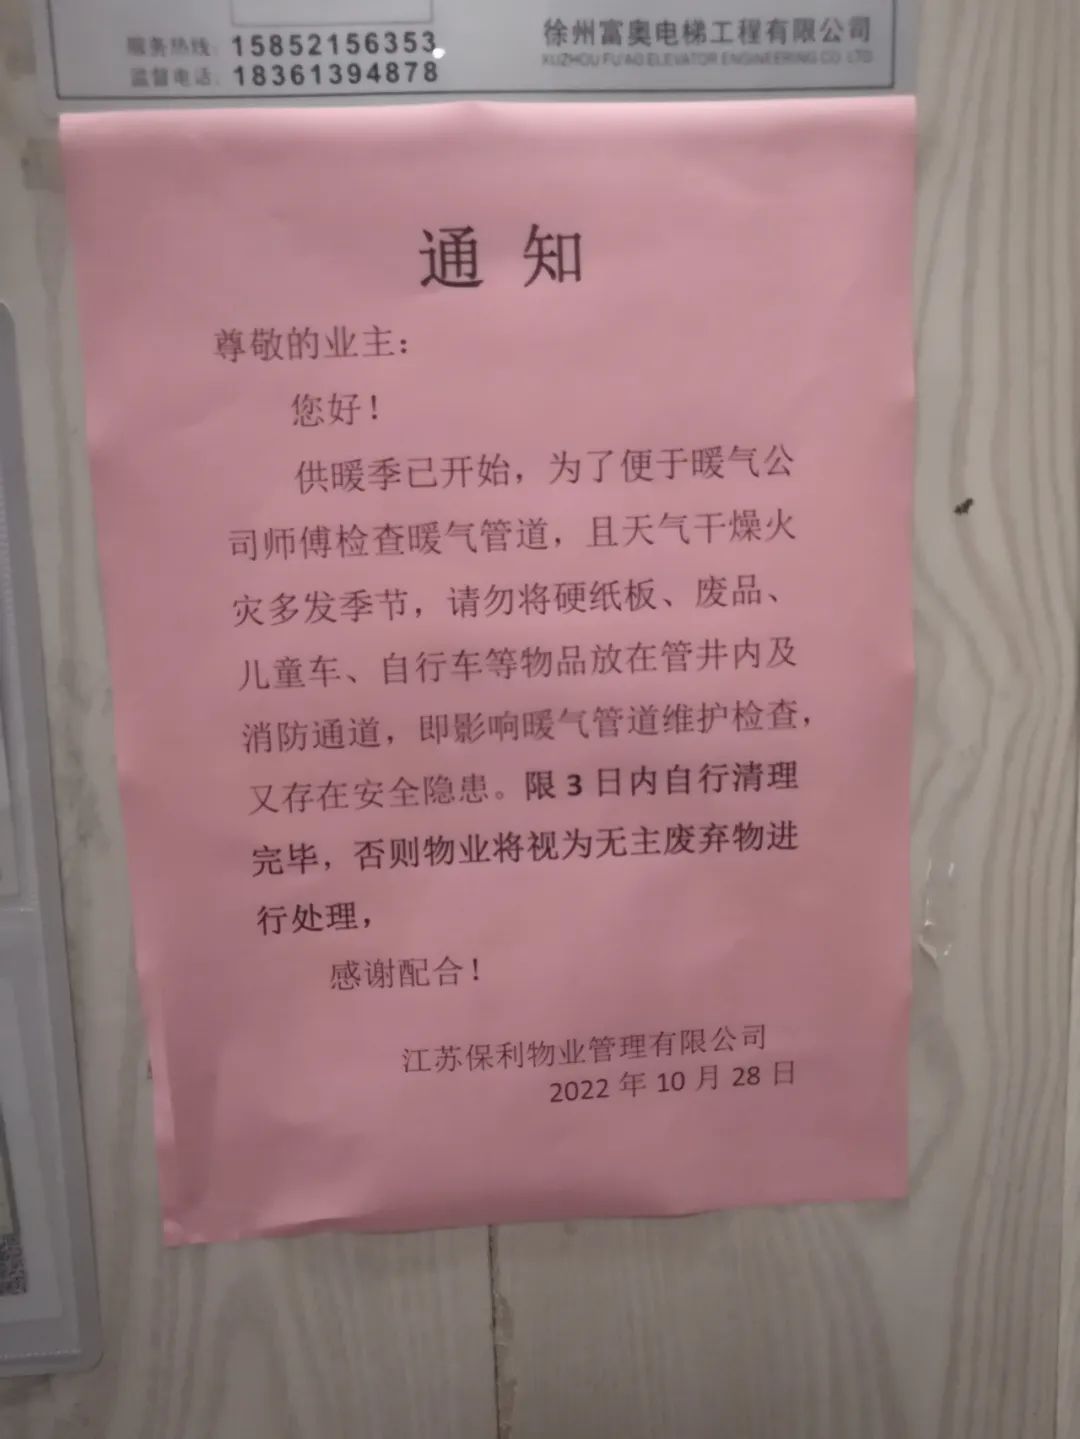 服务热线: 15852156353
监督电话: 18361394878
徐州富奥电梯工程有限公司
XUZHOU FU'AO ELEVATOR ENGINEERING CO LTD
通 知
尊敬的业主：
您好！
供暖季已开始，为了便于暖气公
司师傅检查暖气管道，且天气干燥火
灾多发季节，请勿将硬纸板、废品、
儿童车、自行车等物品放在管井内及
消防通道，即影响暖气管道维护检查，
又存在安全隐患。限 3 日内自行清理
完毕，否则物业将视为无主废弃物进
行处理，
感谢配合！
江苏保利物业管理有限公司
2022 年 10 月 28 日